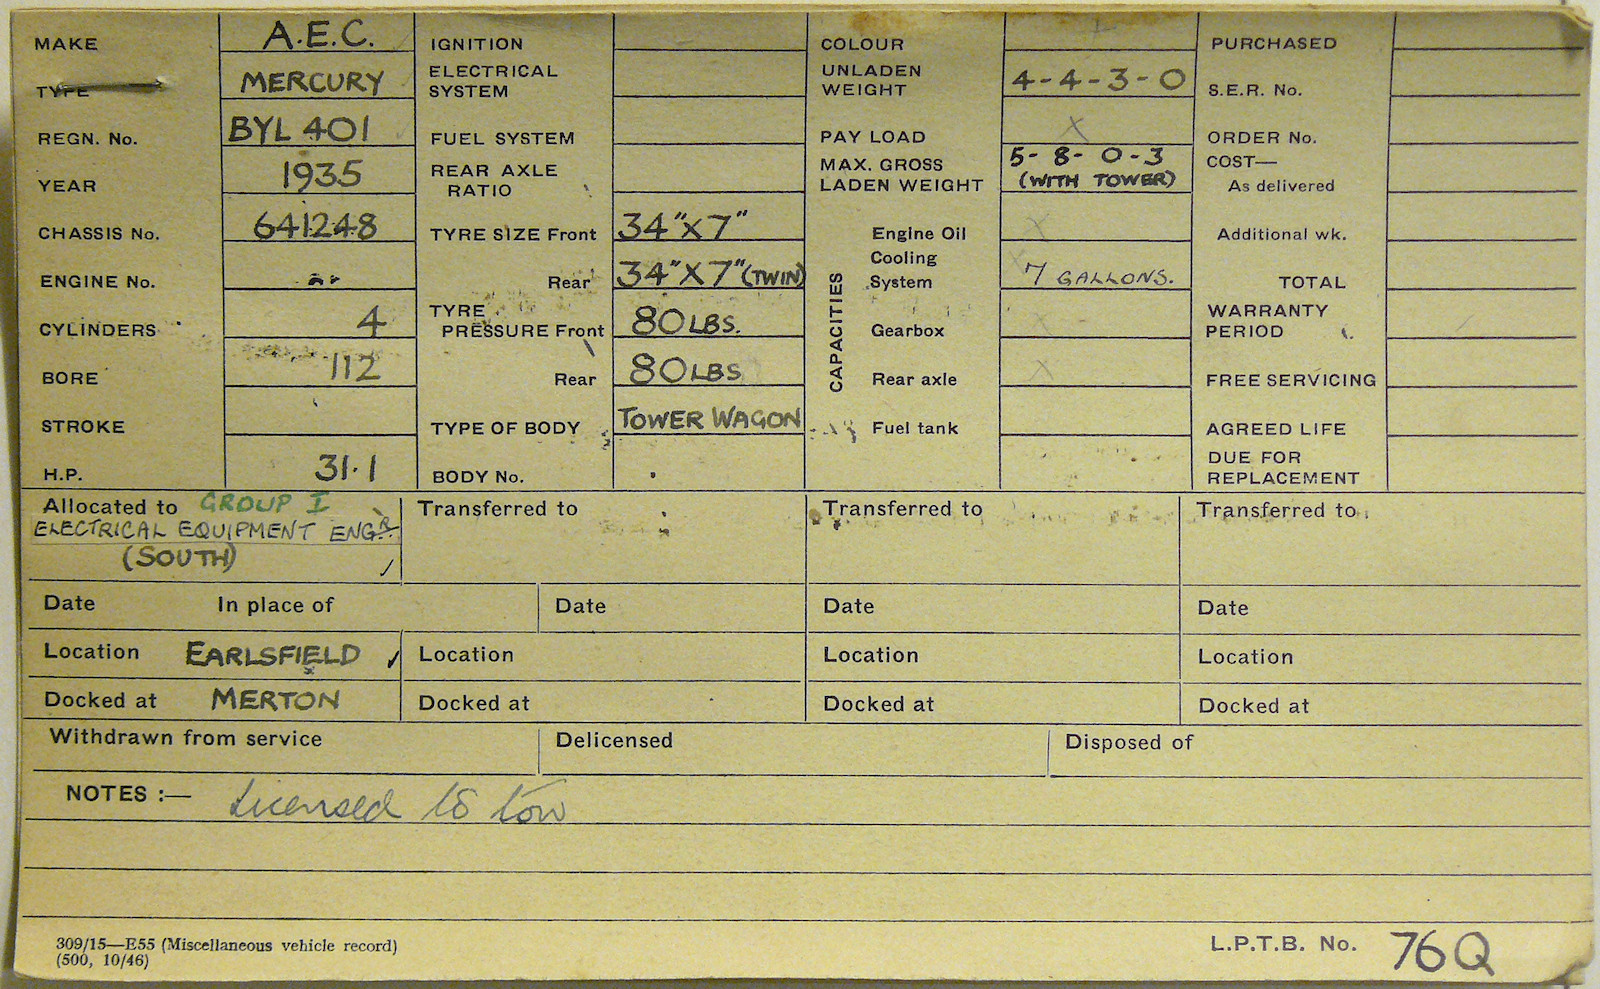 MAKE A.E.C.
TYPE MERCURY
REGN. No. BYL 401
YEAR 1935
CHASSIS No. 641248
ENGINE No. "
CYLINDERS 4
BORE 112
STROKE
H.P. 31·1
IGNITION
ELECTRICAL
SYSTEM
FUEL SYSTEM
REAR AXLE
RATIO
TYRE SIZE Front 34"X7"
Rear 34"X7"(TWIN)
TYRE
PRESSURE Front 80LBS.
Rear 80LBS
TYPE OF BODY TOWER WAGON
BODY No.
COLOUR
UNLADEN
WEIGHT 4-4-3-0
PAY LOAD X
MAX. GROSS
LADEN WEIGHT 5-8-0-3
(WITH TOWER)
CAPACITIES
Engine Oil X
Cooling
System 7 GALLONS.
Gearbox X
Rear axle X
Fuel tank
PURCHASED
S.E.R. No.
ORDER No.
COST—
As delivered
Additional wk.
TOTAL
WARRANTY
PERIOD
FREE SERVICING
AGREED LIFE
DUE FOR
REPLACEMENT
Allocated to GROUP I
ELECTRICAL EQUIPMENT ENGR.
(SOUTH)
Transferred to
Transferred to
Transferred to
Date In place of
Date
Date
Date
Location EARLSFIELD
Location
Location
Location
Docked at MERTON
Docked at
Docked at
Docked at
Withdrawn from service
Delicensed
Disposed of
NOTES :— Licensed to tow
309/15—E55 (Miscellaneous vehicle record)
(500, 10/46)
L.P.T.B. No. 76Q